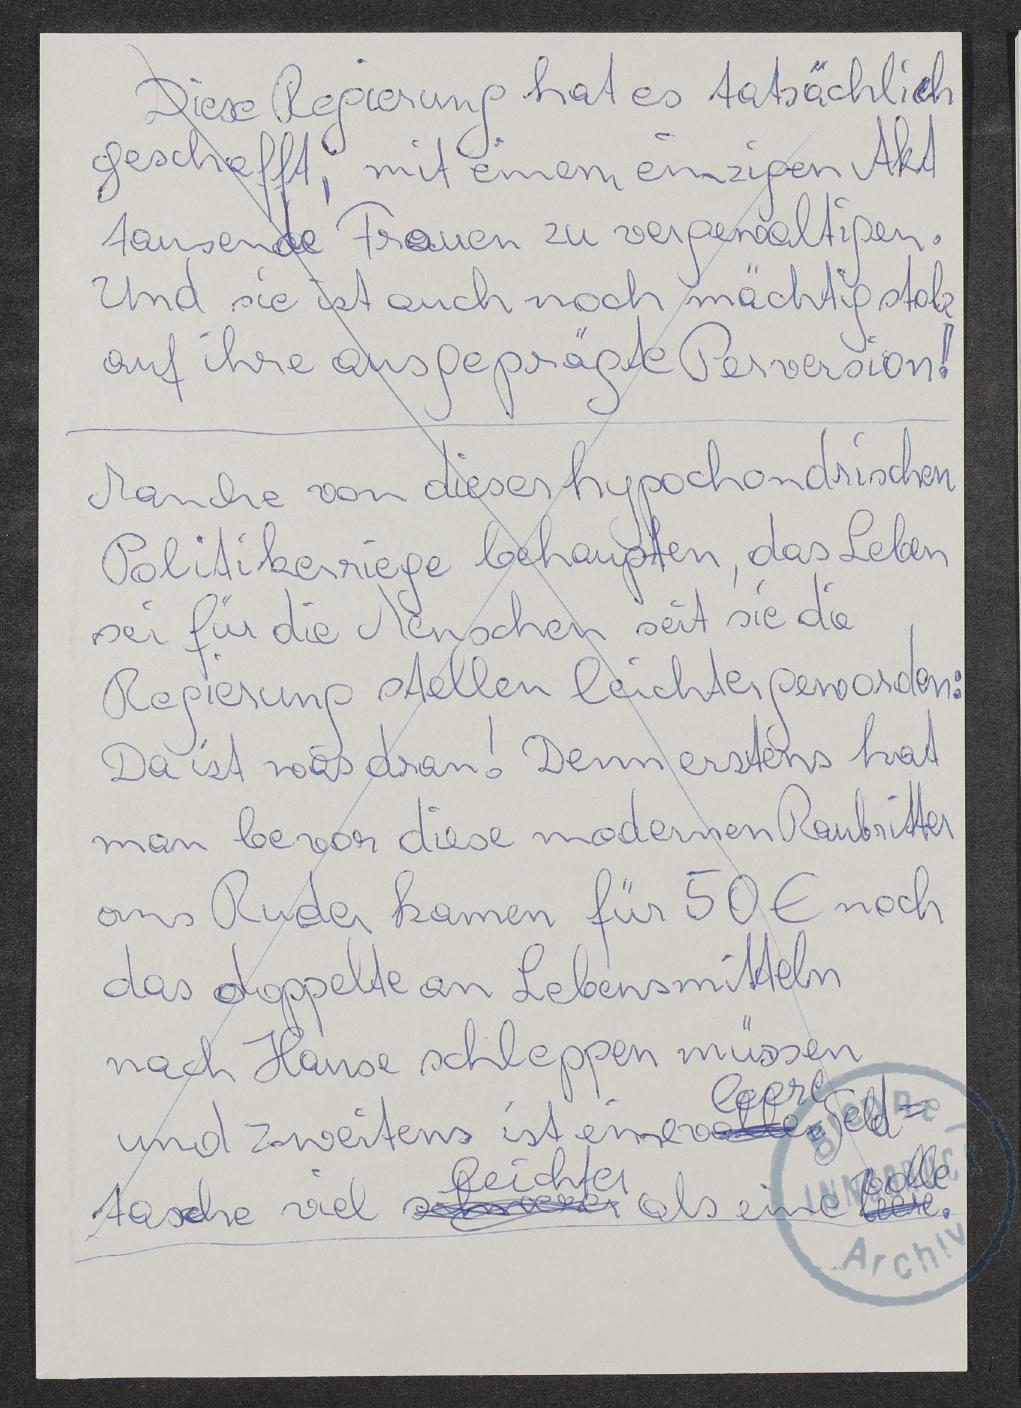 Diese Regierung hat es tatsächlich
geschafft, mit einem einzigen Akt
tausende Frauen zu vergewaltigen.
Und sie ist auch noch mächtig stolz
auf ihre ausgeprägte Perversion!
Manche von dieser hypochondrischen
Politikerriege behaupten, das Leben
sei für die Menschen seit sie die
Regierung stellen leichter geworden:
Da ist was dran! Denn erstens hat
man bevor diese modernen Raubritter
ans Ruder kamen für 50 € noch
das doppelte an Lebensmitteln
nach Hause schleppen müssen
leere
und zweitens ist eine volle Geld=
leichter volle
tasche viel schwerer als eine leere.
Brenner
INNSBRUCK
Archiv